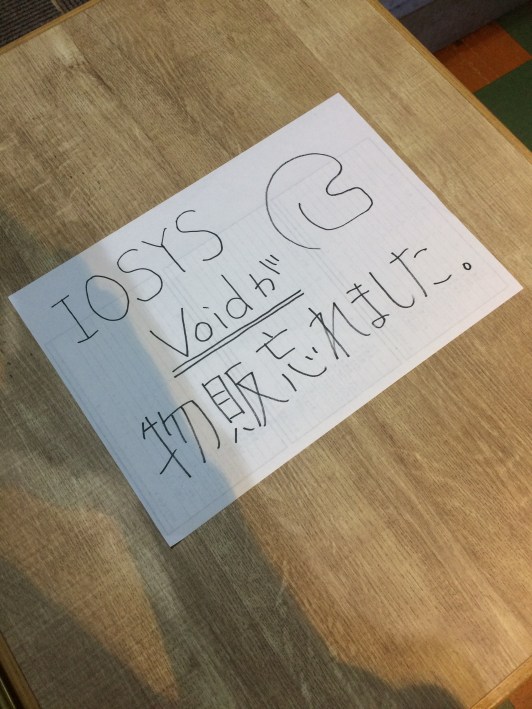 IOSYS
Voidが
物販忘れました。